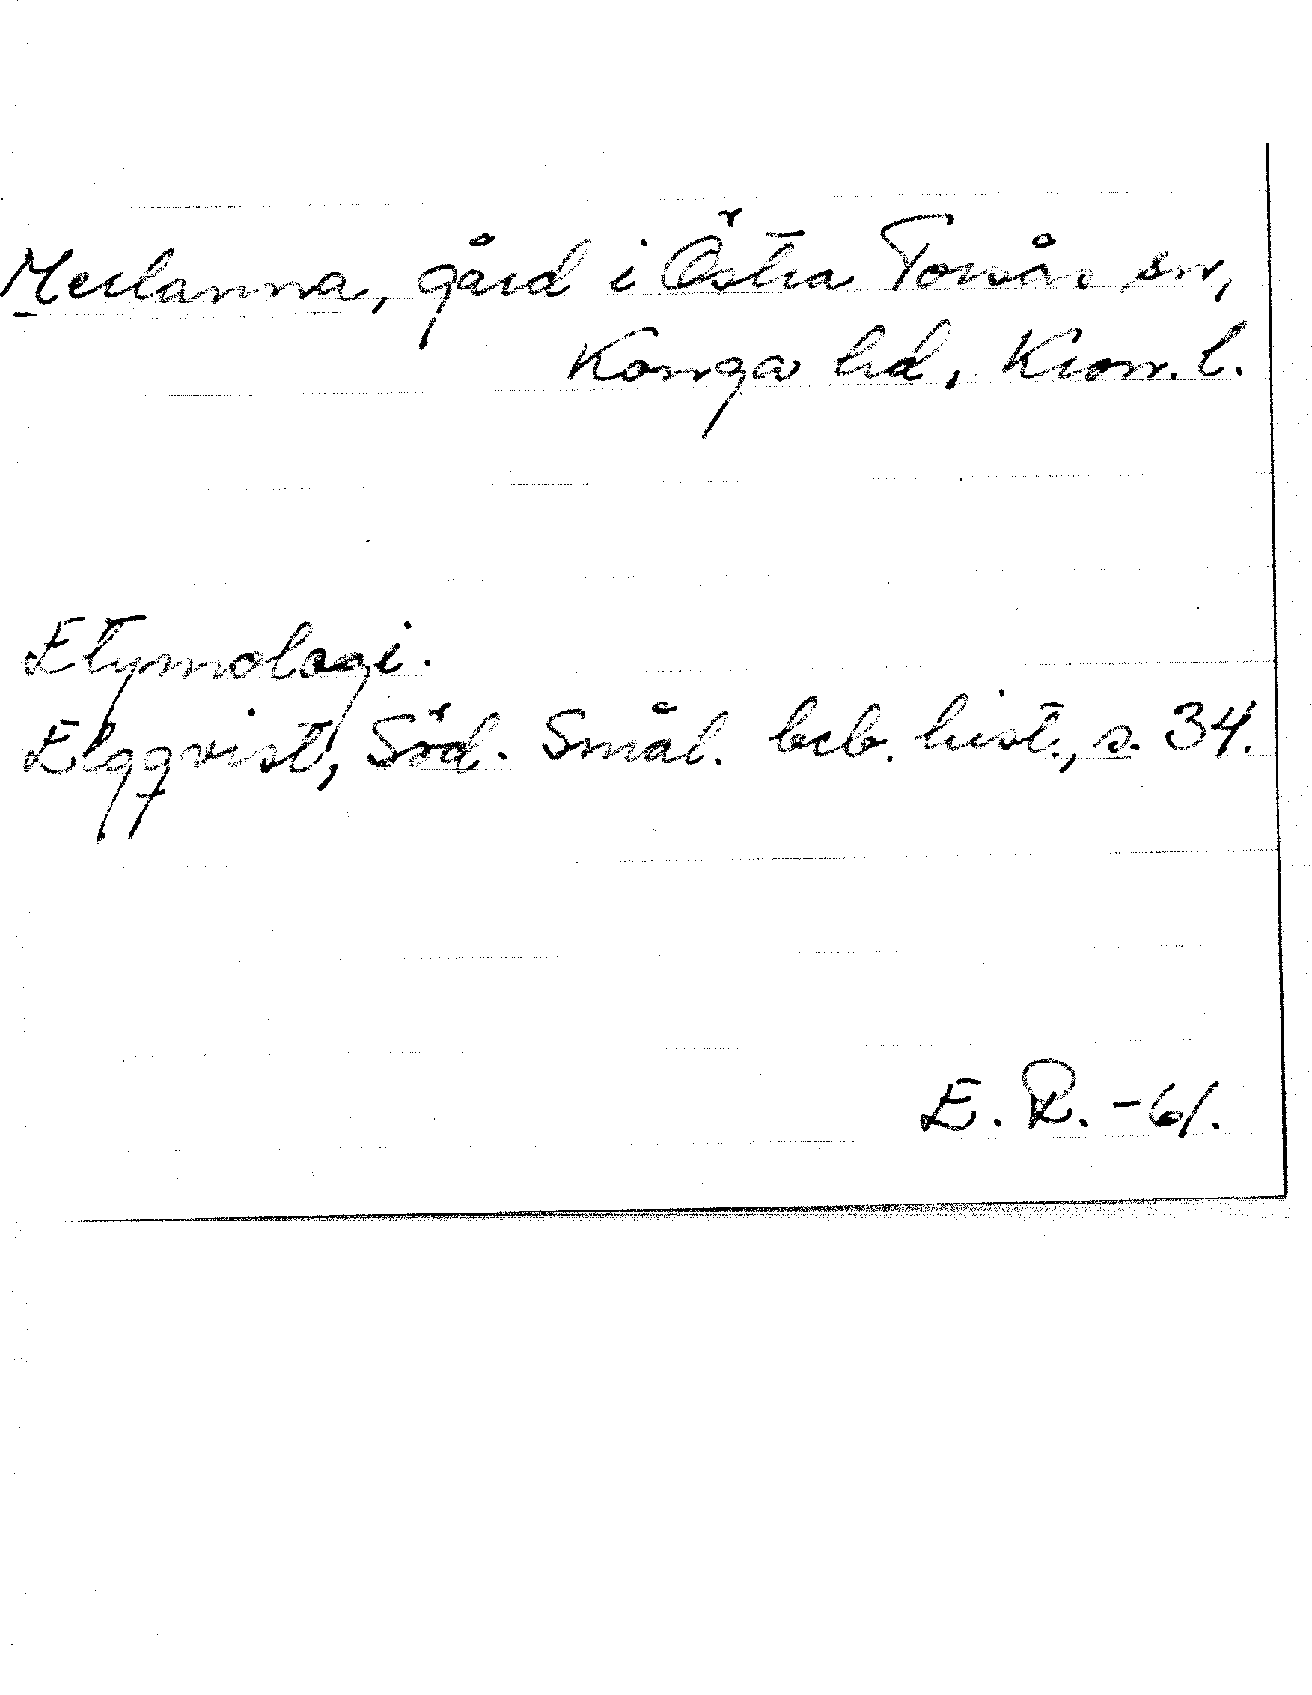 Merlanna, gård i Östra Torsås sn,
Konga hd, Kron. l.
Etymologi.
Elgqvist, Söd. Smål. beb. hist., s. 34.
E. R. -61.